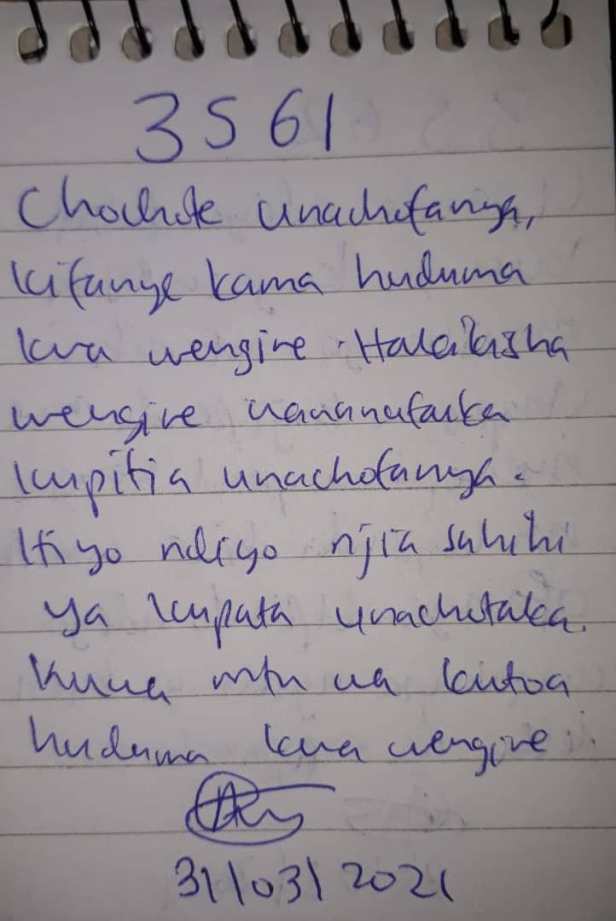 3561
Chochote unachofanya,
kifanye kama huduma
kwa wengine. Hakikisha
wengine wananufaika
kupitia unachofanya.
Hiyo ndiyo njia sahihi
ya kupata unachotaka.
Kuwa mtu wa kutoa
huduma kwa wengine.
31/03/2021